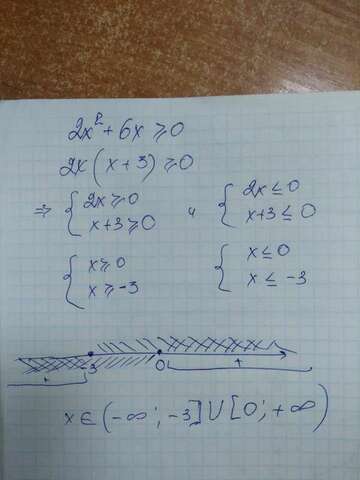 2x² + 6x ≥ 0
2x(x + 3) ≥ 0
⇒ { 2x ≥ 0 и { 2x ≤ 0
x + 3 ≥ 0 x + 3 ≤ 0
{ x ≥ 0 { x ≤ 0
x ≥ -3 x ≤ -3
+ -3 0 +
x ∈ (-∞; -3] ∪ [0; +∞)